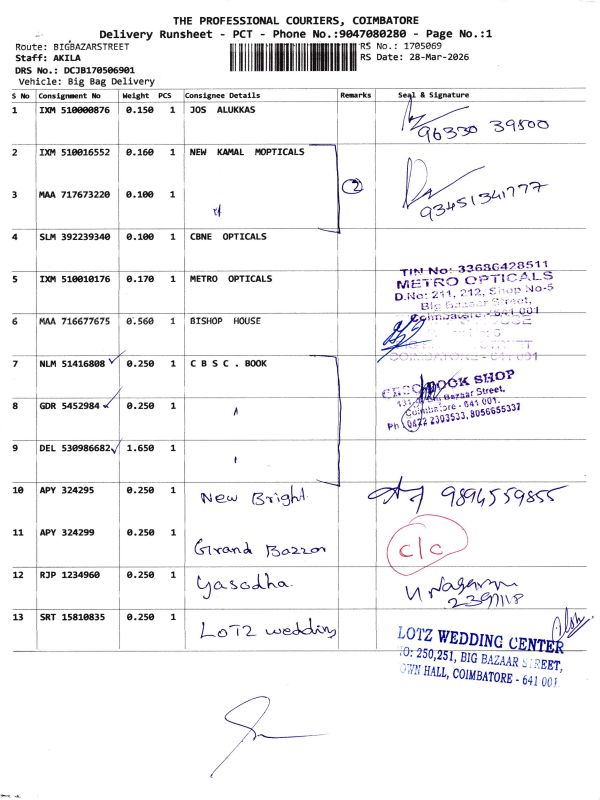 THE PROFESSIONAL COURIERS, COIMBATORE
Delivery Runsheet - PCT - Phone No.:9047080280 - Page No.:1
Route: BIGBAZARSTREET RS No.: 1705069
Staff: AKILA RS Date: 28-Mar-2026
DRS No.: DCJB170506901
Vehicle: Big Bag Delivery
S No Consignment No Weight PCS Consignee Details Remarks Seal & Signature
1 IXM 510000876 0.150 1 JOS ALUKKAS
96330 39500
2 IXM 510016552 0.160 1 NEW KAMAL MOPTICALS
2
3 MAA 717673220 0.100 1
93451341777
4 SLM 392239340 0.100 1 CBNE OPTICALS
5 IXM 510010176 0.170 1 METRO OPTICALS
TIN No: 33686428511
METRO OPTICALS
D.No: 211, 212, Shop No-5
Big Bazaar Street,
Coimbatore. - 641 001
6 MAA 716677675 0.560 1 BISHOP HOUSE
COIMBATORE - 641 001
7 NLM 51416808 0.250 1 C B S C . BOOK
BOOK SHOP
Big Bazaar Street,
Coimbatore - 641 001.
Ph : 0422 2303533, 8056655337
8 GDR 5452984 0.250 1
9 DEL 530986682 1.650 1
10 APY 324295 0.250 1 New Bright 9894559855
11 APY 324299 0.250 1 Grand Bazzor c/c
12 RJP 1234960 0.250 1 Yasodha
2397118
13 SRT 15810835 0.250 1 LoTZ wedding
LOTZ WEDDING CENTER
NO: 250,251, BIG BAZAAR STREET,
OWN HALL, COIMBATORE - 641 001